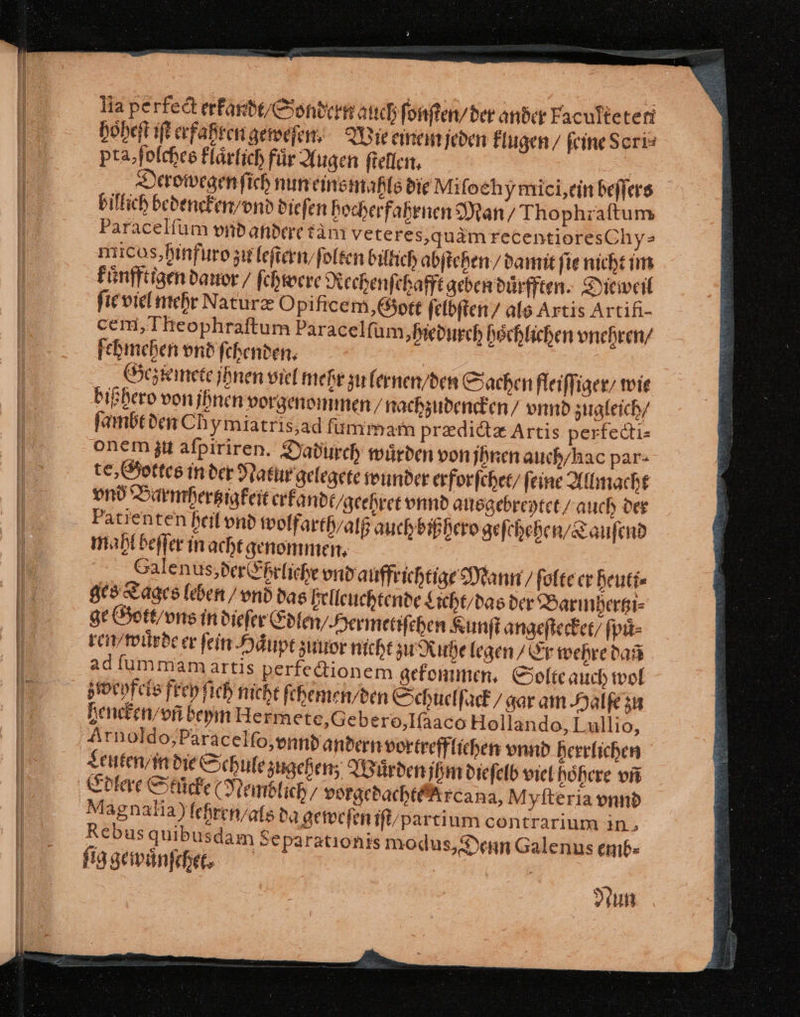 lia perfect erkandt/Sondern auch ſonſten/der ander Faculteten
hoͤheſt iſt erfahren geweſen. Wie einem jeden klugen / ſeine Scri-
pta, ſolches klaͤrlich fuͤr Augen ſtellen.
Derowegen ſich nun einsmahls die Miſochymici, ein beſſers
billich bedencken/vnd dieſen hocherfahrnen Man / Thophraſtum
Paracelſum vnd andere tàm veteres, quàm recentiores Chy-
micos, hinfuro zu leſtern/ſolten billich abſtehen / damit ſie nicht im
kuͤnfftigen dauor / ſchwere Rechenſchafft geben duͤrfften. Dieweil
ſie viel mehr Naturæ Opificem, Gott ſelbſten / als Artis Artifi-
cem, Theophraſtum Paracelſum, hiedurch hoͤchlichen vnehren/
ſchmehen vnd ſchenden.
Geziemete jhnen viel mehr zu lernen/den Sachen fleiſſiger/ wie
bißhero von jhnen vorgenommen / nachzudencken / vnnd zugleich/
ſambt den Chymiatris, ad ſummam prædictæ Artis perfecti-
onem zu aſpiriren. Dadurch wuͤrden von jhnen auch/hac par-
te, Gottes in der Natur gelegete wunder erforſchet/ ſeine Allmacht
vnd Barmhertzigkeit erkandt/geehret vnnd ausgebreytet / auch der
Patienten heil vnd wolfarth/alß auch bißhero geſchehen/Tauſend
mahl beſſer in acht genommen.
Galenus, der Ehrliche vnd auffrichtige Mann / ſolte er heuti-
ges Tages leben / vnd das helleuchtende Licht/das der Barmhertzi-
ge Gott/vns in dieſer Edlen/Hermetiſchen Kunſt angeſtecket/ ſpuͤ-
ren/wuͤrde er ſein Haͤupt zuuor nicht zu Ruhe legen / Er wehre dañ
ad ſummam artis perfectionem gekommen. Solte auch wol
zweyfels frey ſich nicht ſchemen/den Schuelſack / gar am Halſe zu
hencken/vñ beym Hermete, Gebero, Iſaaco Hollando, Lullio,
Arnoldo, Paracelſo, vnnd andern vortrefflichen vnnd herrlichen
Leuten/in die Schule zugehen; Wuͤrden jhm dieſelb viel hoͤhere vñ
Edlere Stuͤcke (Nemblich / vorgedachte Arcana, Myſteria vnnd
Magnalia) lehren/als da geweſen iſt/partium contrarium in,
Rebus quibusdam Separationis modus, Denn Galenus emb-
ſig gewuͤnſchet.
Nun